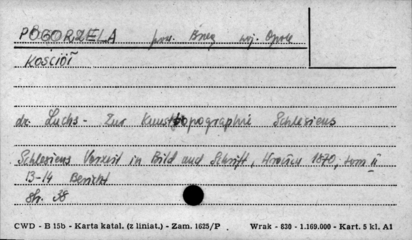 POGORZELA pow. Brzeg woj. Opole
KOŚCIÓŁ
dr. Luchs - Zur Kunsttopographie Schlesiens
Schlesiens Vorzeit in Bild und Schrift, Wrocław 1870, tom II
13-14 Bericht
Str. 38
CWD - B 15b - Karta katal. (z liniat.) - Zam. 1625/P Wrak - 830 - 1.169.000 - Kart. 5 kl. A1